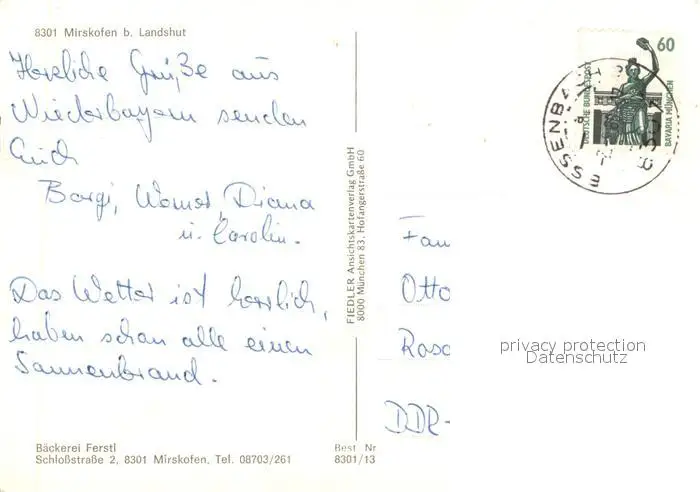 8301 Mirskofen b. Landshut
Herzliche Grüße aus
Niederbayern senden
Euch
Borgi, Werner, Diana
u. Carolin.
Das Wetter ist herrlich,
haben schon alle einen
Sonnenbrand.
Bäckerei Ferstl
Schloßstraße 2, 8301 Mirskofen, Tel. 08703/261
FIEDLER Ansichtskartenverlag GmbH
8000 München 83, Hofangerstraße 60
Best Nr
8301/13
60
DEUTSCHE BUNDESPOST
BAVARIA MÜNCHEN
ESSENBACH
Fam
Otto
Rosc
DDR-
privacy protection
Datenschutz